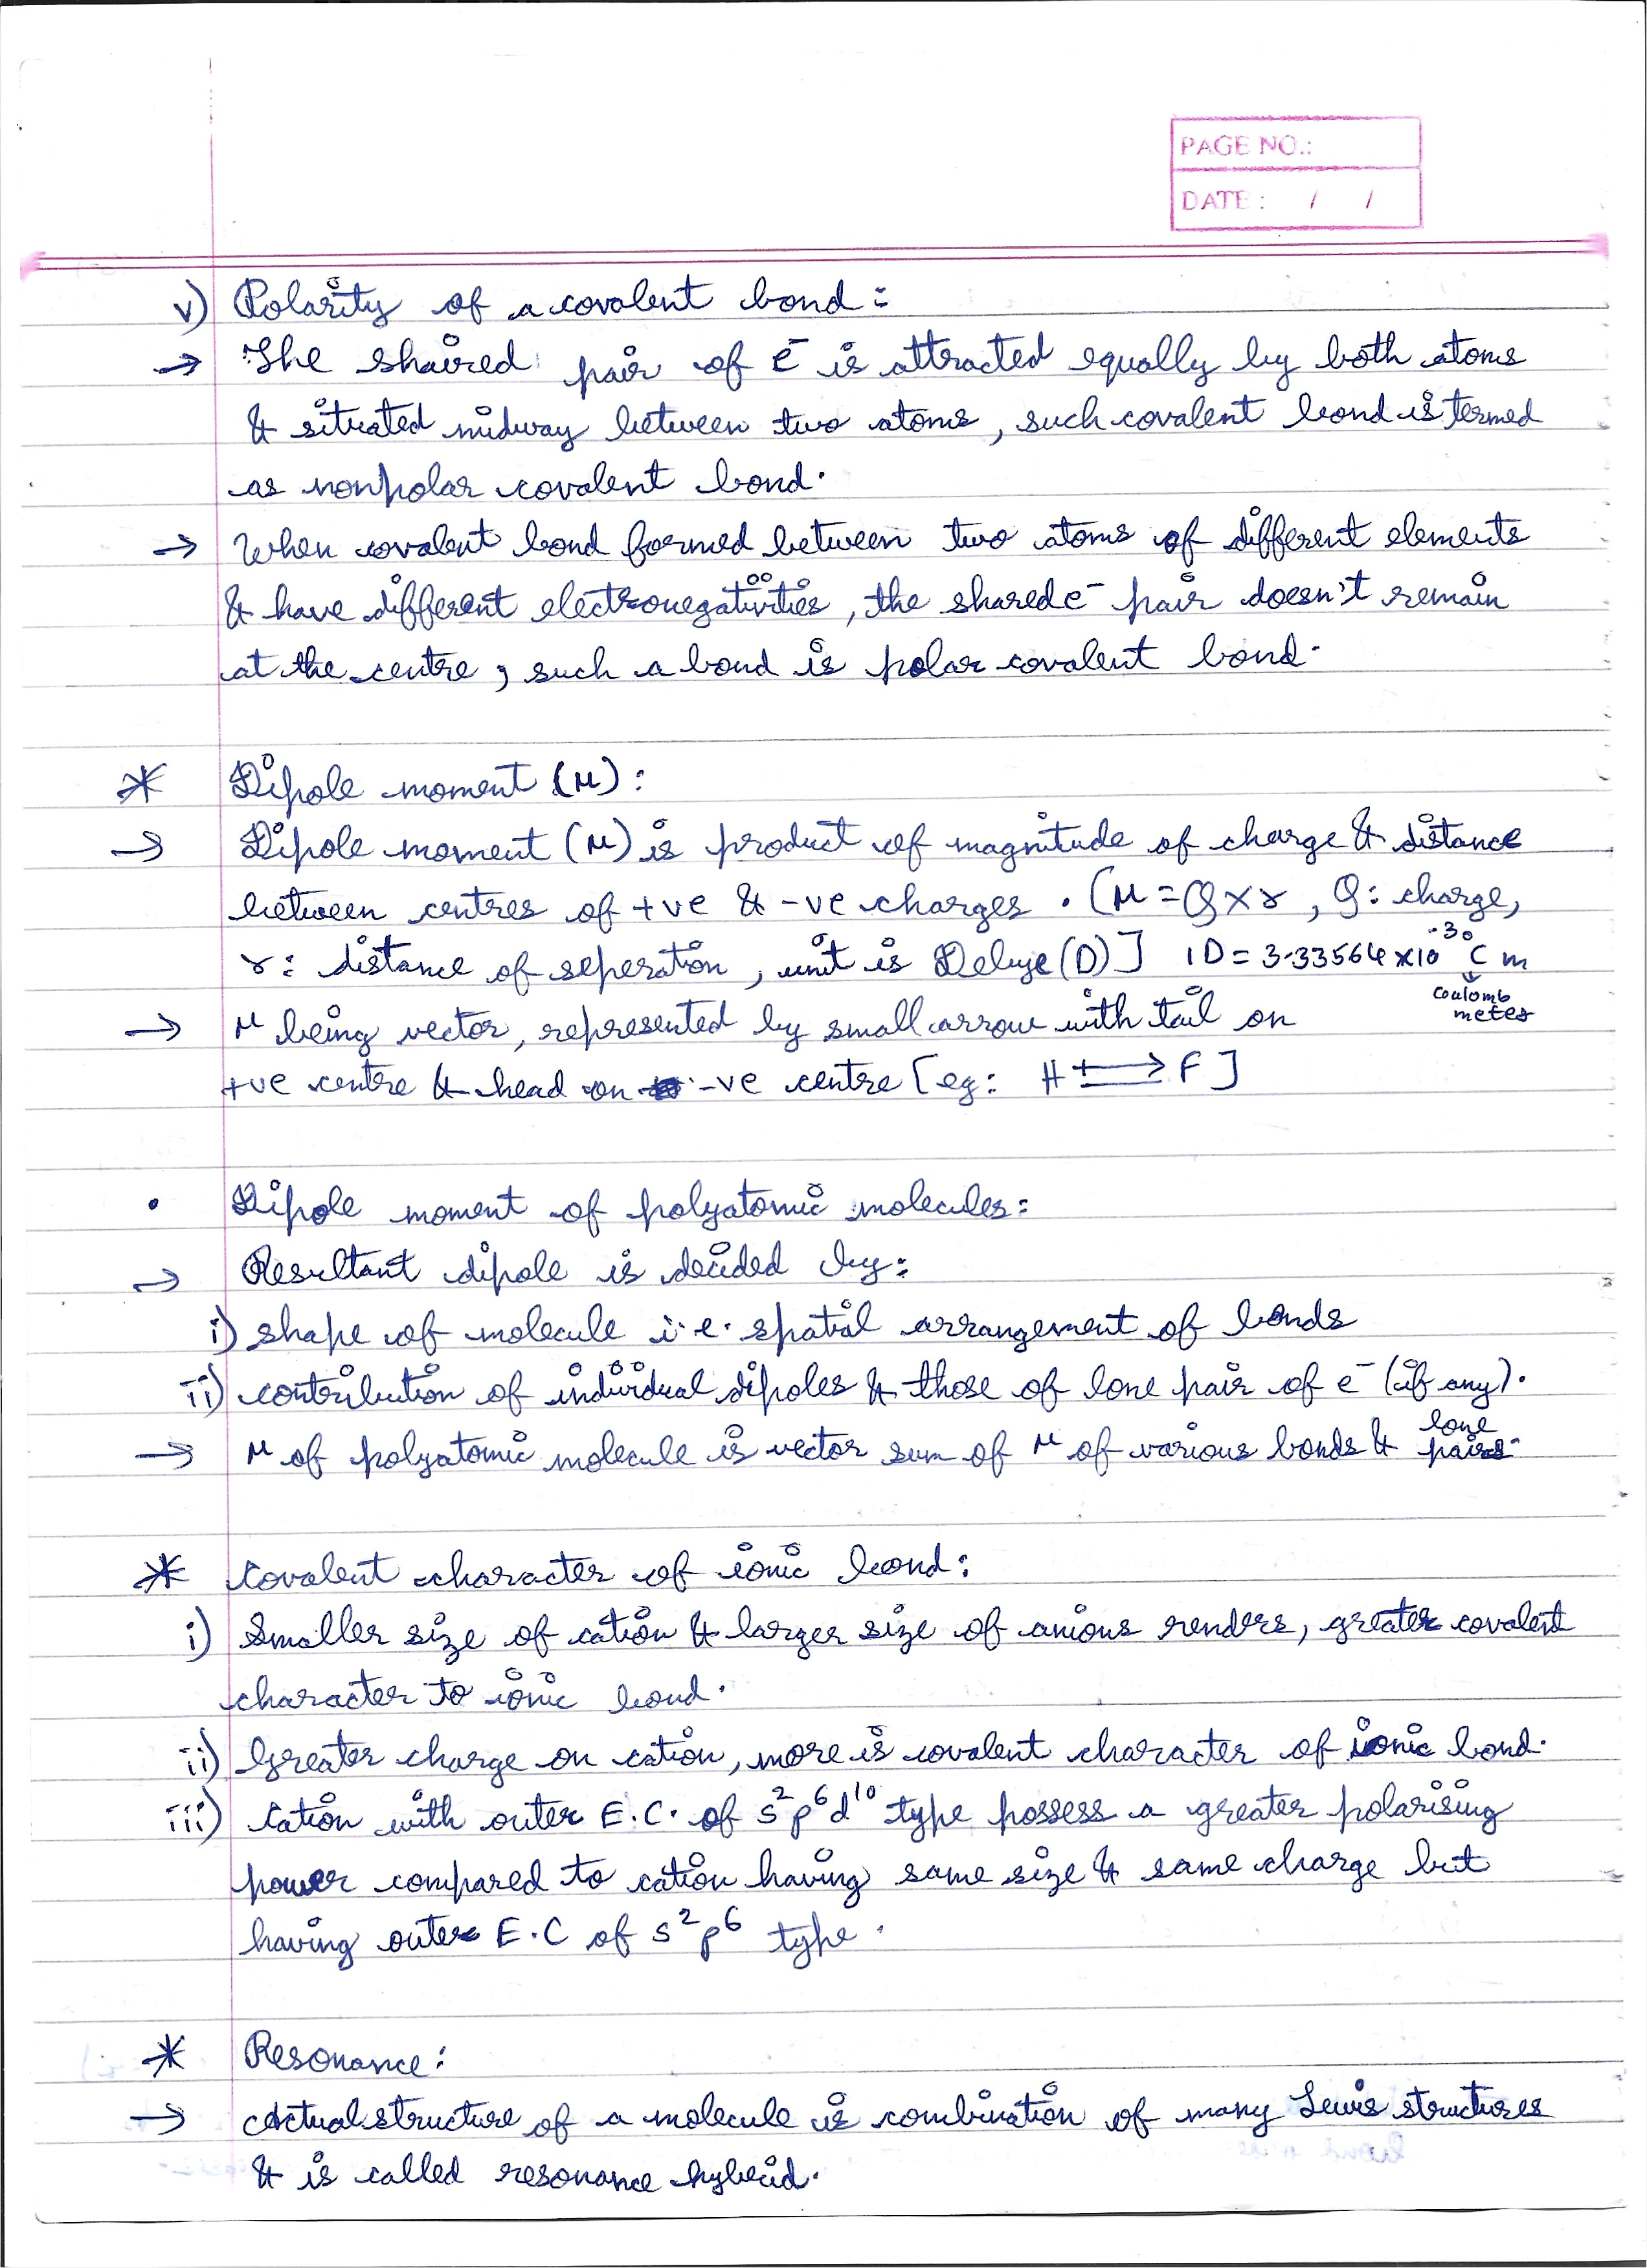 PAGE NO.:
DATE : / /
v) Polarity of a covalent bond:
→ The shaired pair of e⁻ is attracted equally by both atoms
& situated midway between two atoms, such covalent bond is termed
as nonpolar covalent bond.
→ When covalent bond formed between two atoms of different elements
& have different electronegativities, the shared e⁻ pair doesn't remain
at the centre, such a bond is polar covalent bond.
* Dipole moment (μ):
→ Dipole moment (μ) is product of magnitude of charge & distance
between centres of +ve & -ve charges. [μ = Q×r, Q: charge,
r: distance of seperation, unit is Debye (D)] 1D = 3.33564×10⁻³⁰ C m
coulomb
meter
→ μ being vector, represented by small arrow with tail on
+ve centre & head on -ve centre [eg: H ⇸ F]
• Dipole moment of polyatomic molecules:
→ Resultant dipole is decided by:
i) shape of molecule i.e. spatial arrangement of bonds
ii) contribution of individual dipoles & those of lone pair of e⁻ (if any).
→ μ of polyatomic molecule is vector sum of μ of various bonds & lone pairs.
* Covalent character of ionic bond:
i) Smaller size of cation & larger size of anions renders, greater covalent
character to ionic bond.
ii) Greater charge on cation, more is covalent character of ionic bond.
iii) Cation with outer E.C. of s²p⁶d¹⁰ type possess a greater polarising
power compared to cation having same size & same charge but
having outer E.C of s²p⁶ type.
* Resonance:
→ Actual structure of a molecule is combination of many Lewis structures
& is called resonance hybrid.